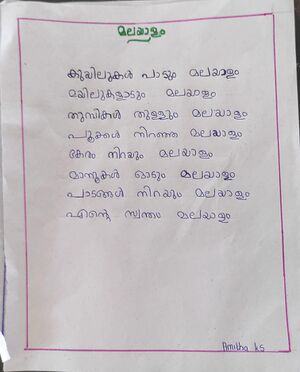 മലയാളം
കുയിലുകൾ പാടും മലയാളം
മയിലുകളാടും മലയാളം
തുമ്പികൾ തുള്ളും മലയാളം
പൂക്കൾ നിറഞ്ഞ മലയാളം
കേരം നിറയും മലയാളം
മാനുകൾ ഓടും മലയാളം
പാടങ്ങൾ നിറയും മലയാളം
എന്റെ സ്വന്തം മലയാളം
Amitha KS